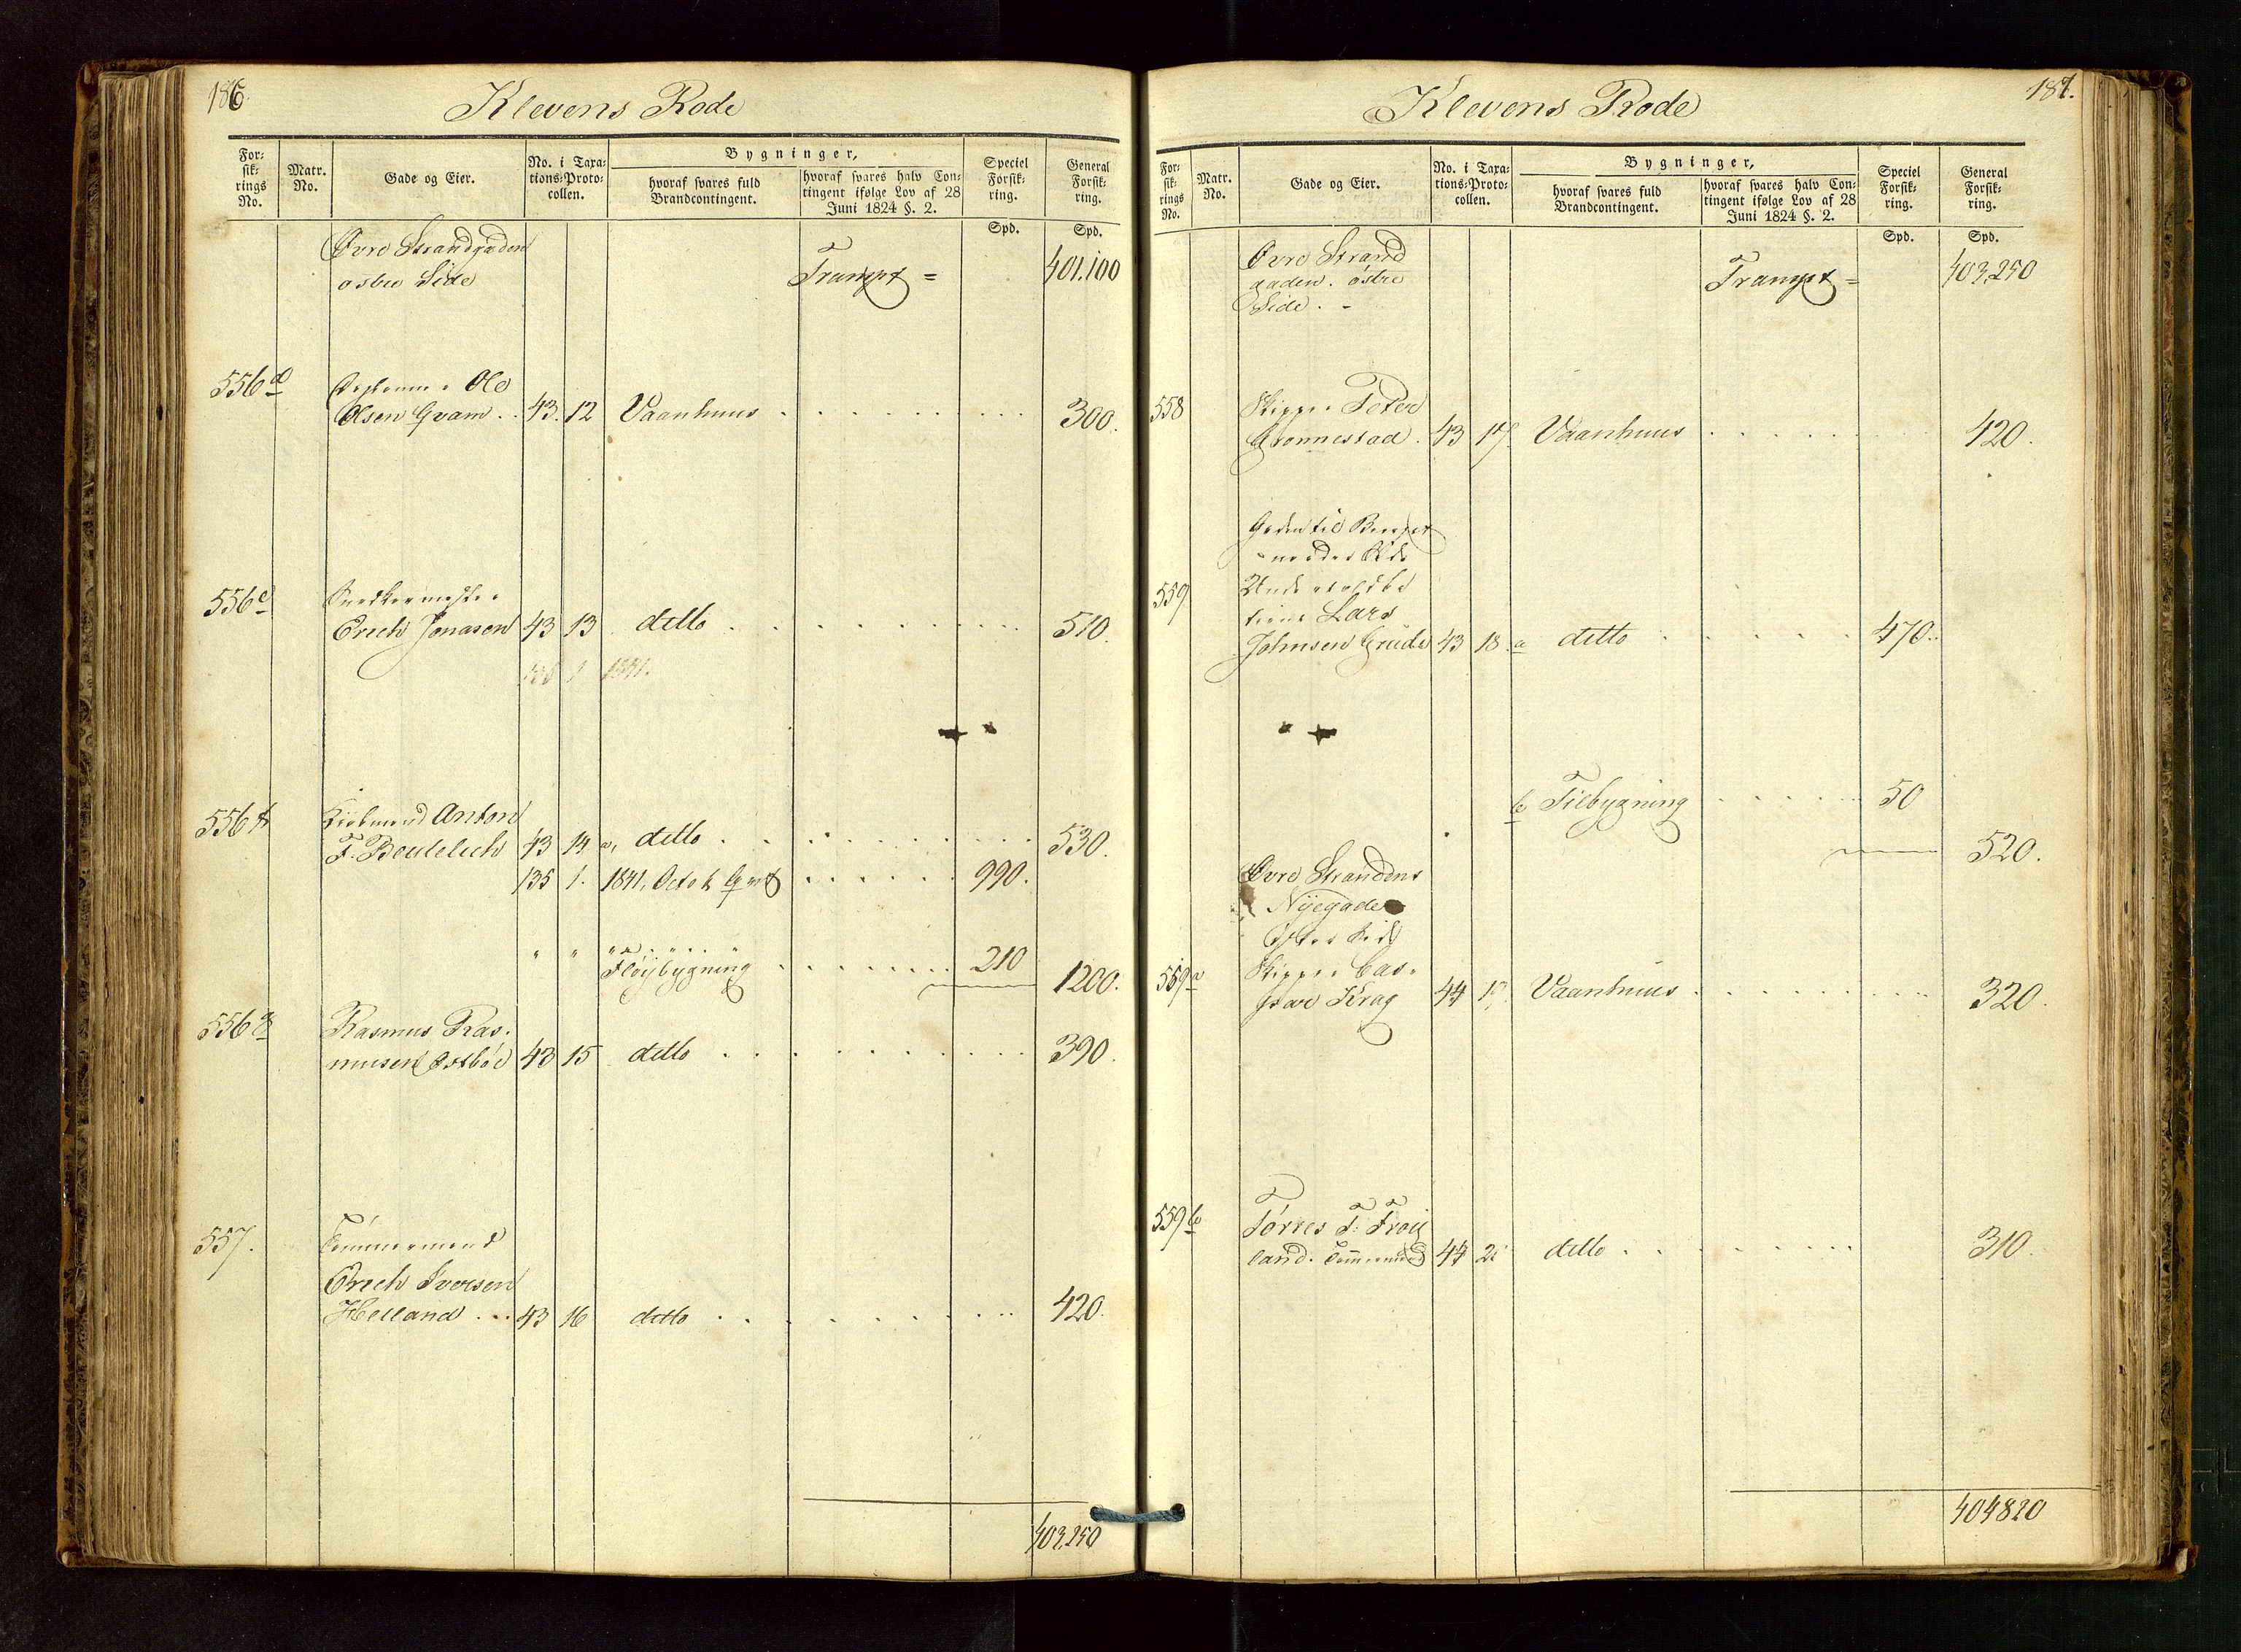 186.
Klevens Rode
For:
sik:
rings
No.
Matr.
No.
Gade og Eier.
No. i Taxa:
tions:Proto:
collen.
Bygninger,
hvoraf svares fuld
Brandcontingent.
hvoraf svares halv Con:
tingent ifølge Lov af 28
Juni 1824 §. 2.
Speciel
Forsik:
ring.
General
Forsik:
ring.
Spd. Spd.
Øvre Strandgaden
østre Side
Transpt = 401.100
556 d Ole
Olsen Qvam . . 43. 12 Vaanhuus 300.
556 e Snedkermester
Erich Jonasen 43 13 ditto 510.
1841.
556 f Kiøbmand Anton
F. 43 14 a, ditto 530.
135 1. 1841, Octob 990.
" " Fløybygning 210 1200.
556 g Rasmus Ras-
musen Østbøe 43 15 ditto 390.
557. Tømmermand
Erich Iversen
Helland . . . 43 16 ditto 420.
403,250
187.
Klevens Rode
For:
sik:
rings
No.
Matr.
No.
Gade og Eier.
No. i Taxa:
tions:Proto:
collen.
Bygninger,
hvoraf svares fuld
Brandcontingent.
hvoraf svares halv Con:
tingent ifølge Lov af 28
Juni 1824 §. 2.
Speciel
Forsik:
ring.
General
Forsik:
ring.
Spd. Spd.
Øvre Strand
gaden. østre
Side. -
Transpt = 403,250
558 Skipper Peder
Grønnestad . 43 17. Vaanhuus 420.
Gaden til
559
Lars
Johnsen Grude 43 18 a ditto 470.
b Tilbygning 50
520.
Øvre Strandens
Nyegade
559 a Skipper Cas-
Krag 44 1 Vaanhuus 320.
559 b Tørres T. Frøy
land. Tømmermand 44 2 ditto 310.
404820